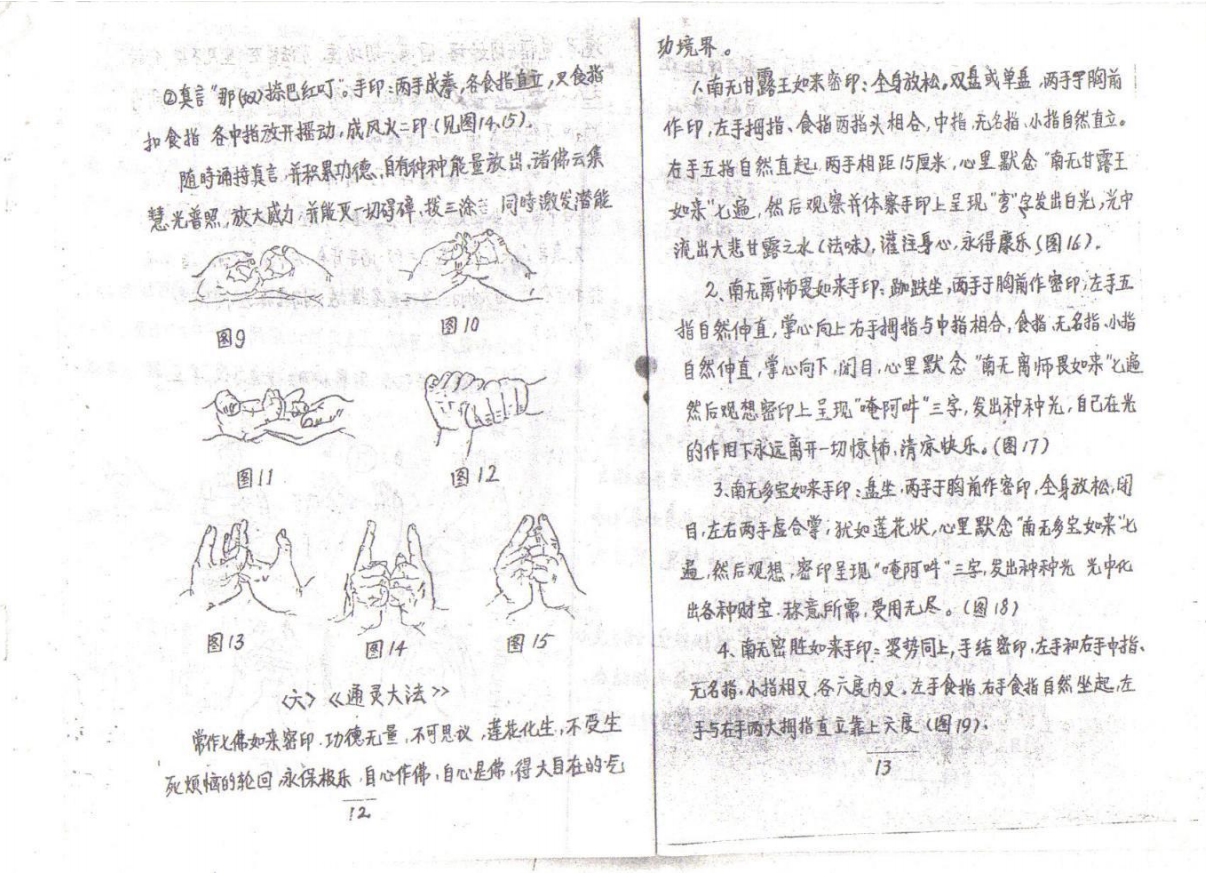 ②真言"那(奴)捺巴红吽"。手印:两手成拳,各食指直立,又食指
扣食指 各中指放开摇动,成风火二印(见图14,15)。
随时诵持真言,并积累功德,自有种种能量放出,诸佛云集
慧光普照,放大威力,并能灭一切碍碍,拔三涂, 同時激发潜能
图9
图10
图11
图12
图13
图14
图15
〈六〉《通灵大法》
常作七佛如来密印.功德无量,不可思议,莲花化生,不受生
死烦恼的轮回,永保极乐,自心作佛,自心是佛,得大自在的气
12
功境界。
1.南无甘露王如来密印:全身放松,双盘或单盘,两手于胸前
作印,左手拇指、食指两指头相合,中指,无名指,小指自然直立。
右手五指自然直起,两手相距15厘米,心里默念"南无甘露王
如来"七遍,然后观察并体察手印上呈现"弯"字发出白光,光中
流出大悲甘露之水(法味),灌注身心,永得康乐(图16)。
2、南无离怖畏如来手印:跏趺坐,两手于胸前作密印,左手五
指自然伸直,掌心向上右手拇指与中指相合,食指,无名指,小指
自然伸直,掌心向下,闭目,心里默念"南无离师畏如来"七遍
然后观想密印上呈现"唵阿吽"三字,发出种种光,自己在光
的作用下永远离开一切惊怖,清凉快乐。(图17)
3、南无多宝如来手印:盘坐,两手于胸前作密印,全身放松,闭
目,左右两手虚合掌,犹如莲花状,心里默念"南无多宝如来"七
遍,然后观想,密印呈现"唵阿吽"三字,发出种种光 光中化
出各种财宝.称意所需,受用无尽。(图18)
4、南无密胜如来手印:姿势同上,手结密印,左手和右手中指、
无名指,小指相叉,各六度内叉。左手食指,右手食指自然坐起,左
手与右手两大拇指直立靠上六度(图19)。
13